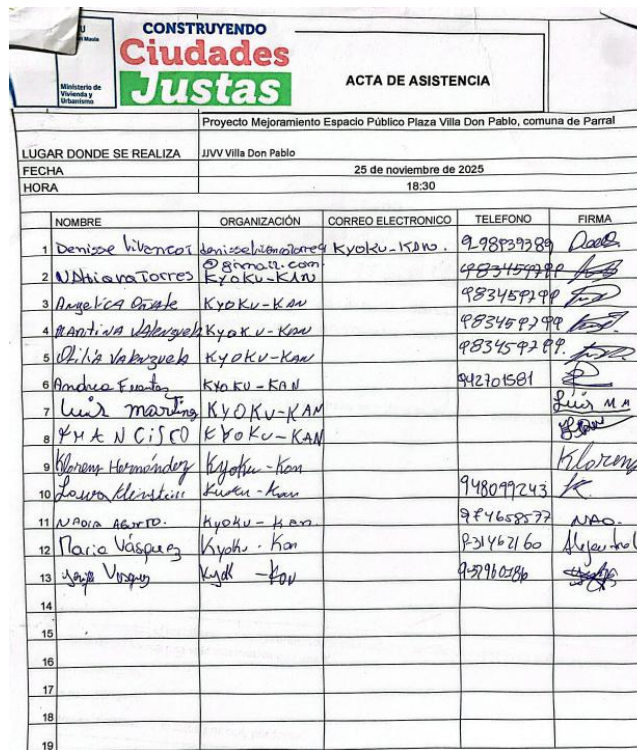 CONSTRUYENDO
Ciudades
Justas
Ministerio de
Vivienda y
Urbanismo
ACTA DE ASISTENCIA
Proyecto Mejoramiento Espacio Público Plaza Villa Don Pablo, comuna de Parral
LUGAR DONDE SE REALIZA JJVV Villa Don Pablo
FECHA 25 de noviembre de 2025
HORA 18:30
NOMBRE ORGANIZACIÓN CORREO ELECTRONICO TELEFONO FIRMA
1 Denisse Vivancos Kyoku-Kan. 298939389
@gmail.com
2 Torres KYOKU-KAN 983459799
3 Angelica Oñate KYOKU-KAN 983459799
4 Martina Valenzuela KYOKU-KAN 983459799
5 Otilia Valenzuela KYOKU-KAN 983459799.
6 Andrea Fuentes KYOKU-KAN 942701581
7 Luis Martinez KYOKU-KAN Luis M M
8 KYOKU-KAN
9 Klorens Hernández Kyoku-Kan Klorens
10 Laura Kleinstein Kyoku-Kan 948099243
11 NADIA Kyoku-Kan. 974658577 NAO.
12 Maria Vásquez Kyoku-Kan
13 Vasquez
14
15
16
17
18
19